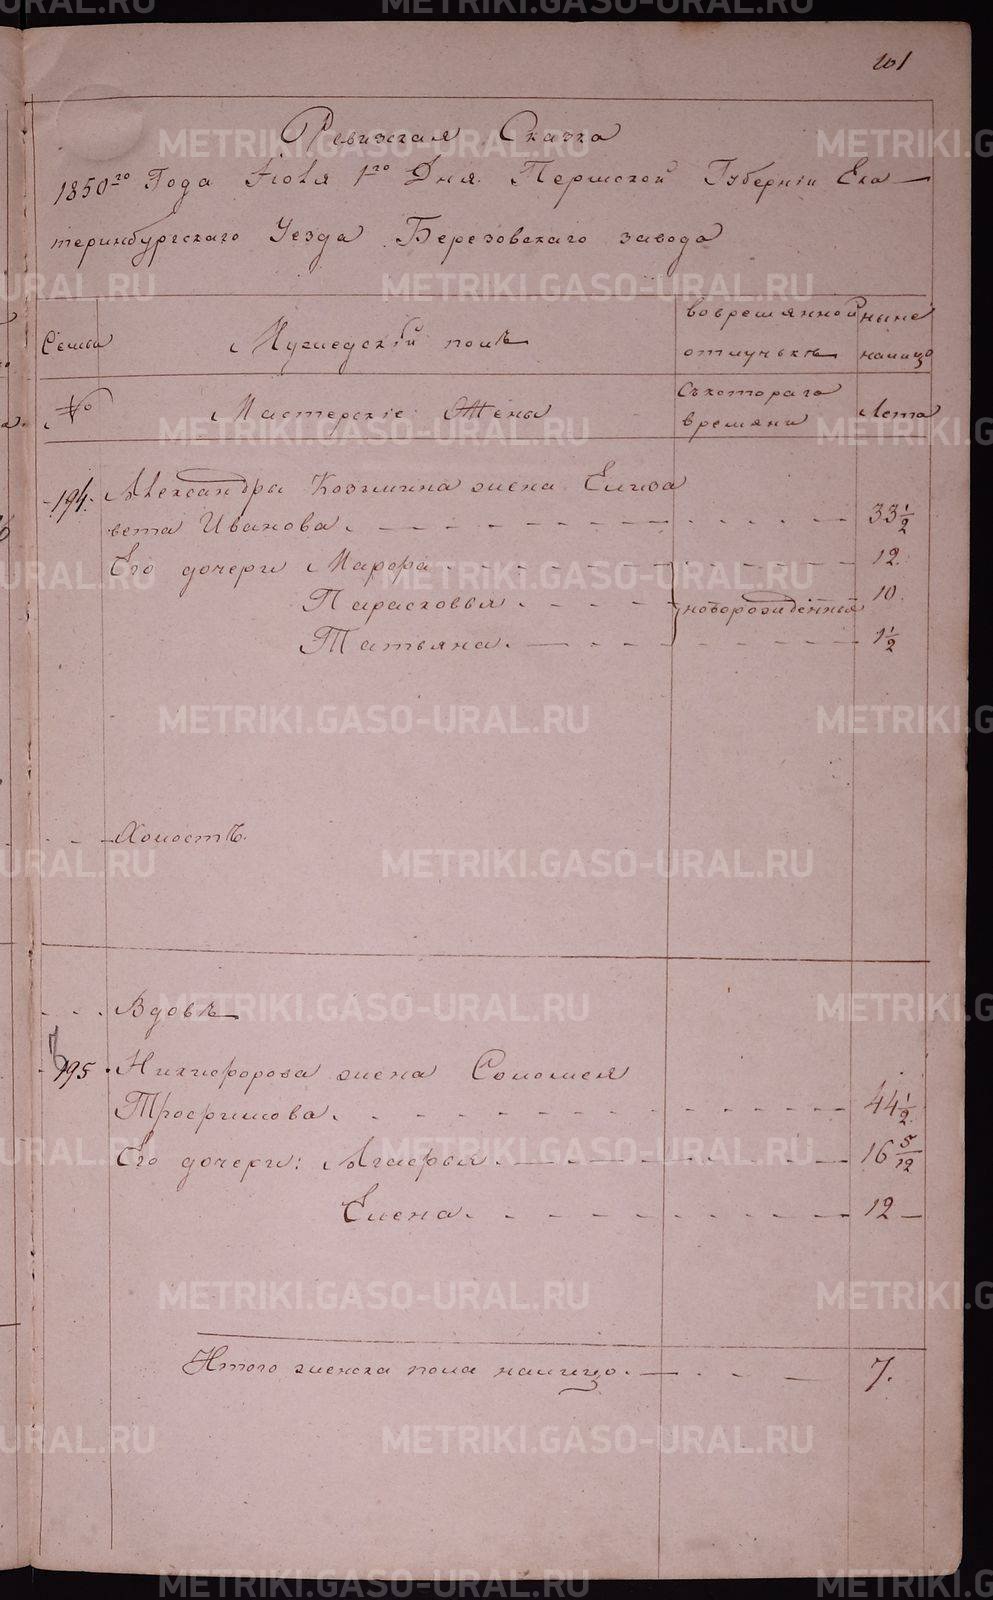 201
Ревизская Сказка
1850го Года Июля 1го Дня. Пермской Губернiи Ека-
теринбургскаго Уезда Березовскаго завода
Семьи
Женскiй полъ
во временной
отлучькѣ
ныне
налицо
№
Мастерскiе Жены
съ котораго
времяни
Лета
194.
Александра Козмина жена Елиза
вета Иванова.
33 1/2
Его дочери Марфа
12.
Парасковья
новорожденныя
10.
Татьяна.
1 1/2
Холостъ.
Вдовъ
195
Никифорова жена Соломея
Трофимова.
44 1/2
Его дочери: Агафья
16 5/12
Елена.
12
Итого женска пола налицо.
7.
METRIKI.GASO-URAL.RU